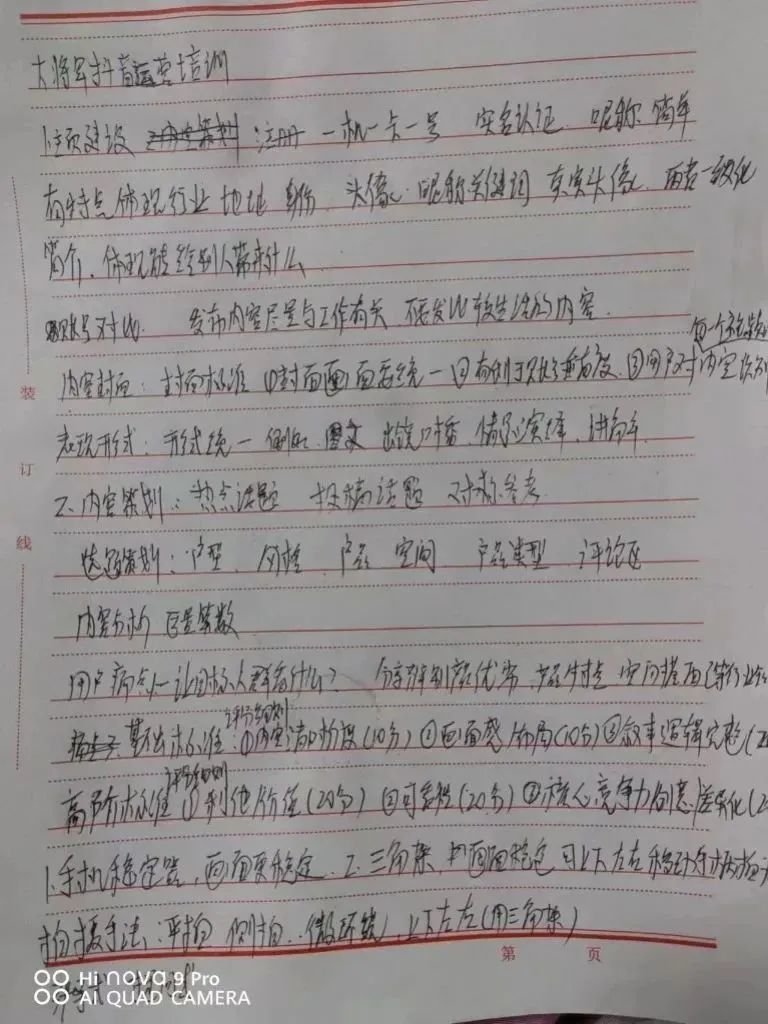 大将军抖音运营培训
1.主页建设 注册 一机一卡一号 实名认证 昵称 简单
有特点体现行业 地址 身份 头像:昵称关键词 真实头像,两者一致化
简介,体现能给别人带来什么
账号对比 发布内容尽量与工作有关,不要发比较生活的内容
每一个视频
内容封面:封面标准 ①封面画面要统一 ②有利于账号垂直度 ③用户对内容识别
表现形式:形式统一 例如:图文 出镜口播,情景演绎,讲
2.内容策划:热点话题 话题 对标参考
选题策划:户型、风格、产品 空间、产品类型、评论区
内容分析 巨量算数
用户痛点—让目标人群看什么? 产品优劣,产品特点 空间
评分细则
基础标准:①内容清晰度(10分) ②画面感 布局(10分) ③叙事逻辑完整(2
评分细则
高阶标准 ①利他价值(20分) ②可看性(20分) ③核心竞争力创意/差异化(2
1.手机稳定器,画面更稳定 2.三角架,画面稳定 可上下左右移动
拍摄手法:平拍 侧拍、微环绕,上下左右(用三角架)
第 页
装
订
线
Hi nova 9 Pro
AI QUAD CAMERA